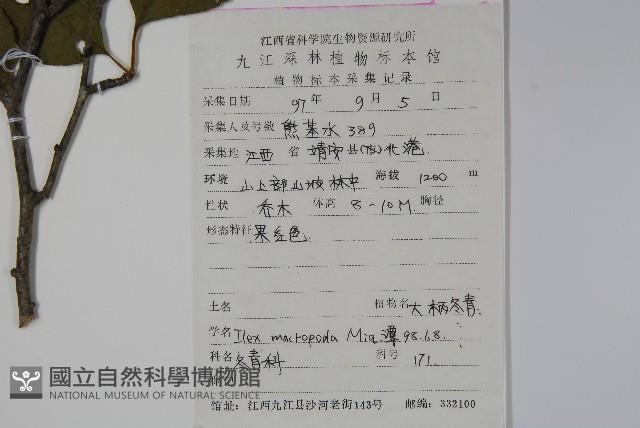 江西省科学院生物资源研究所
九江森林植物标本馆
植物标本采集记录
采集日期 97年 9月 5日
采集人及号数 熊基水 389
采集地 江西 省 靖安县(市)北港
环境 山上部山坡林中 海拔 1200 m
性状 乔木 体高 8-10M 胸径
形态特征 果红色
土名 植物名 大柄冬青
学名 Ilex macropoda Miq 谭98.6.8.
科名 冬青科 科号 171
國立自然科學博物館
NATIONAL MUSEUM OF NATURAL SCIENCE
馆址:江西九江县沙河老街143号 邮编:332100